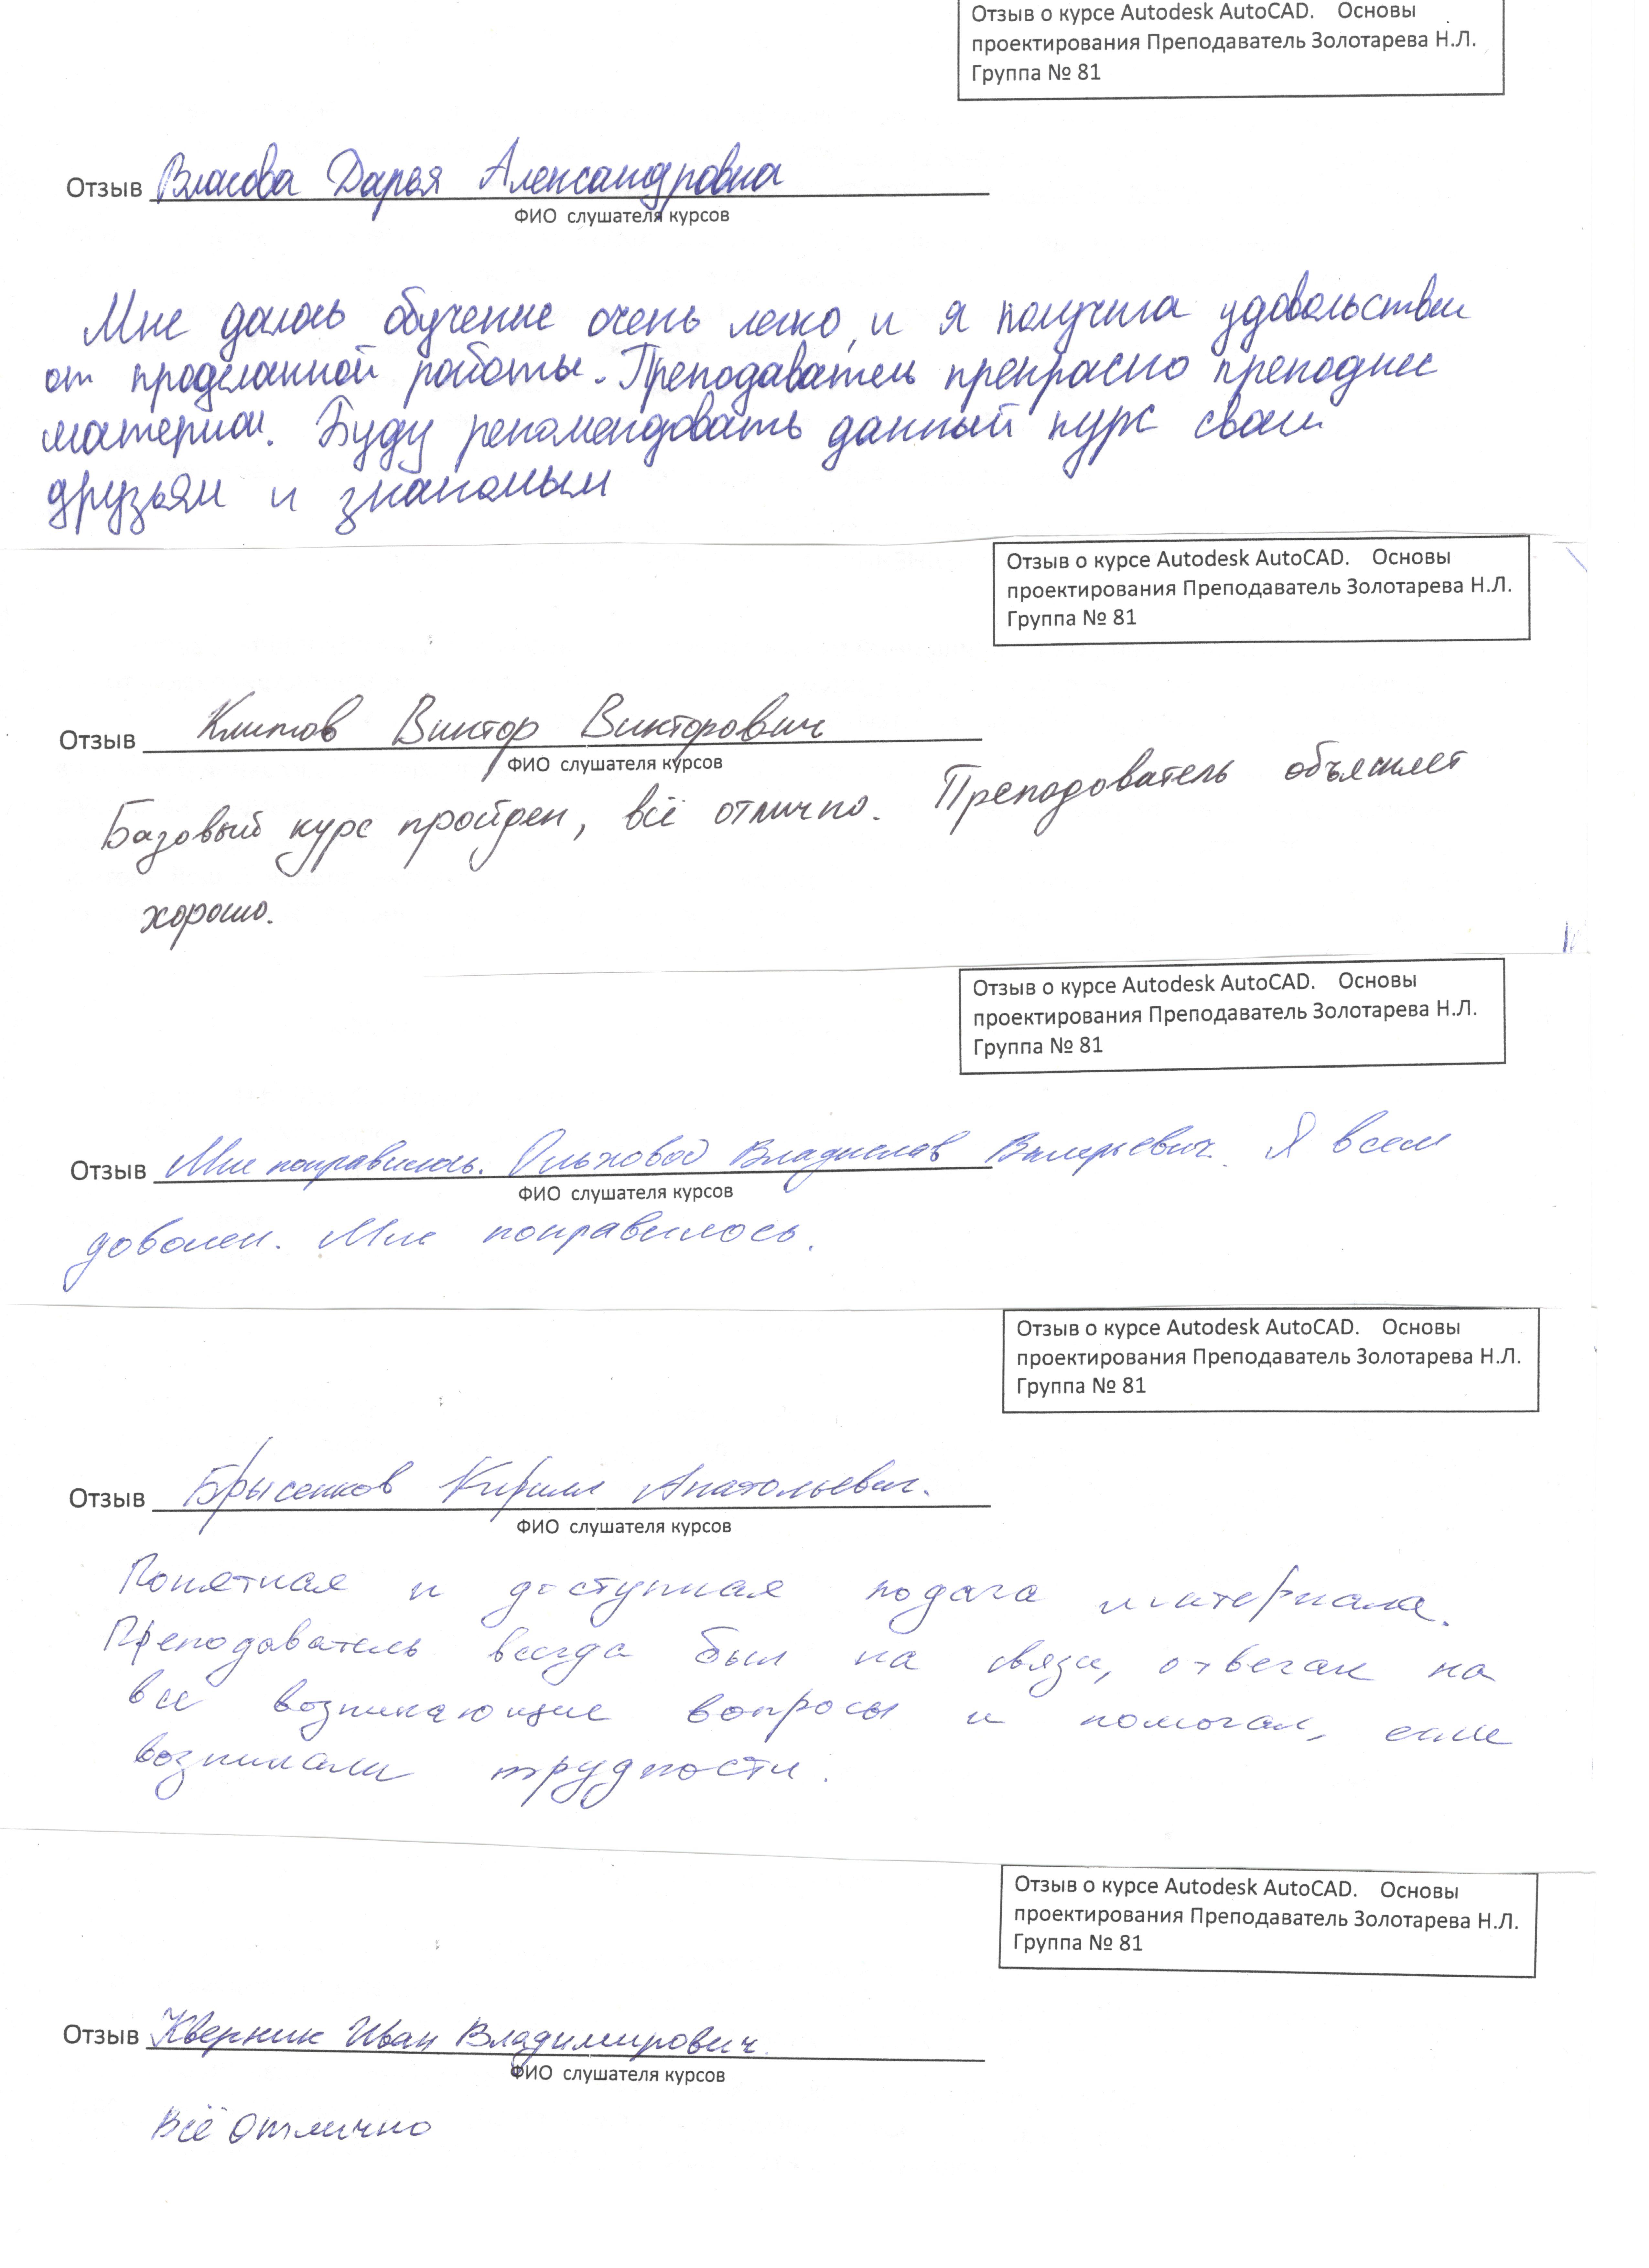 Отзыв о курсе Autodesk AutoCAD. Основы
проектирования Преподаватель Золотарева Н.Л.
Группа № 81
Отзыв Власова Дарья Александровна
ФИО слушателя курсов
Мне далось обучение очень легко, и я получила удовольствии
от проделанной работы. Преподаватель прекрасно преподнес
материал. Буду рекомендовать данный курс своим
друзьям и знакомым
Отзыв о курсе Autodesk AutoCAD. Основы
проектирования Преподаватель Золотарева Н.Л.
Группа № 81
Отзыв Виктор Викторович
ФИО слушателя курсов
Базовый курс пройден, всё отлично. Преподователь объясняет
хорошо.
Отзыв о курсе Autodesk AutoCAD. Основы
проектирования Преподаватель Золотарева Н.Л.
Группа № 81
Отзыв Мне понравилось. Ольховой Владислав Валерьевич. Я всем
ФИО слушателя курсов
доволен. Мне понравилось.
Отзыв о курсе Autodesk AutoCAD. Основы
проектирования Преподаватель Золотарева Н.Л.
Группа № 81
Отзыв Брысенков Кирилл Анатольевич.
ФИО слушателя курсов
Понятная и доступная подача материала.
Преподаватель всегда был на связи, отвечал на
все возникающие вопросы и помогал, если
возникали трудности.
Отзыв о курсе Autodesk AutoCAD. Основы
проектирования Преподаватель Золотарева Н.Л.
Группа № 81
Отзыв Кверник Иван Владимирович
ФИО слушателя курсов
Всё отлично